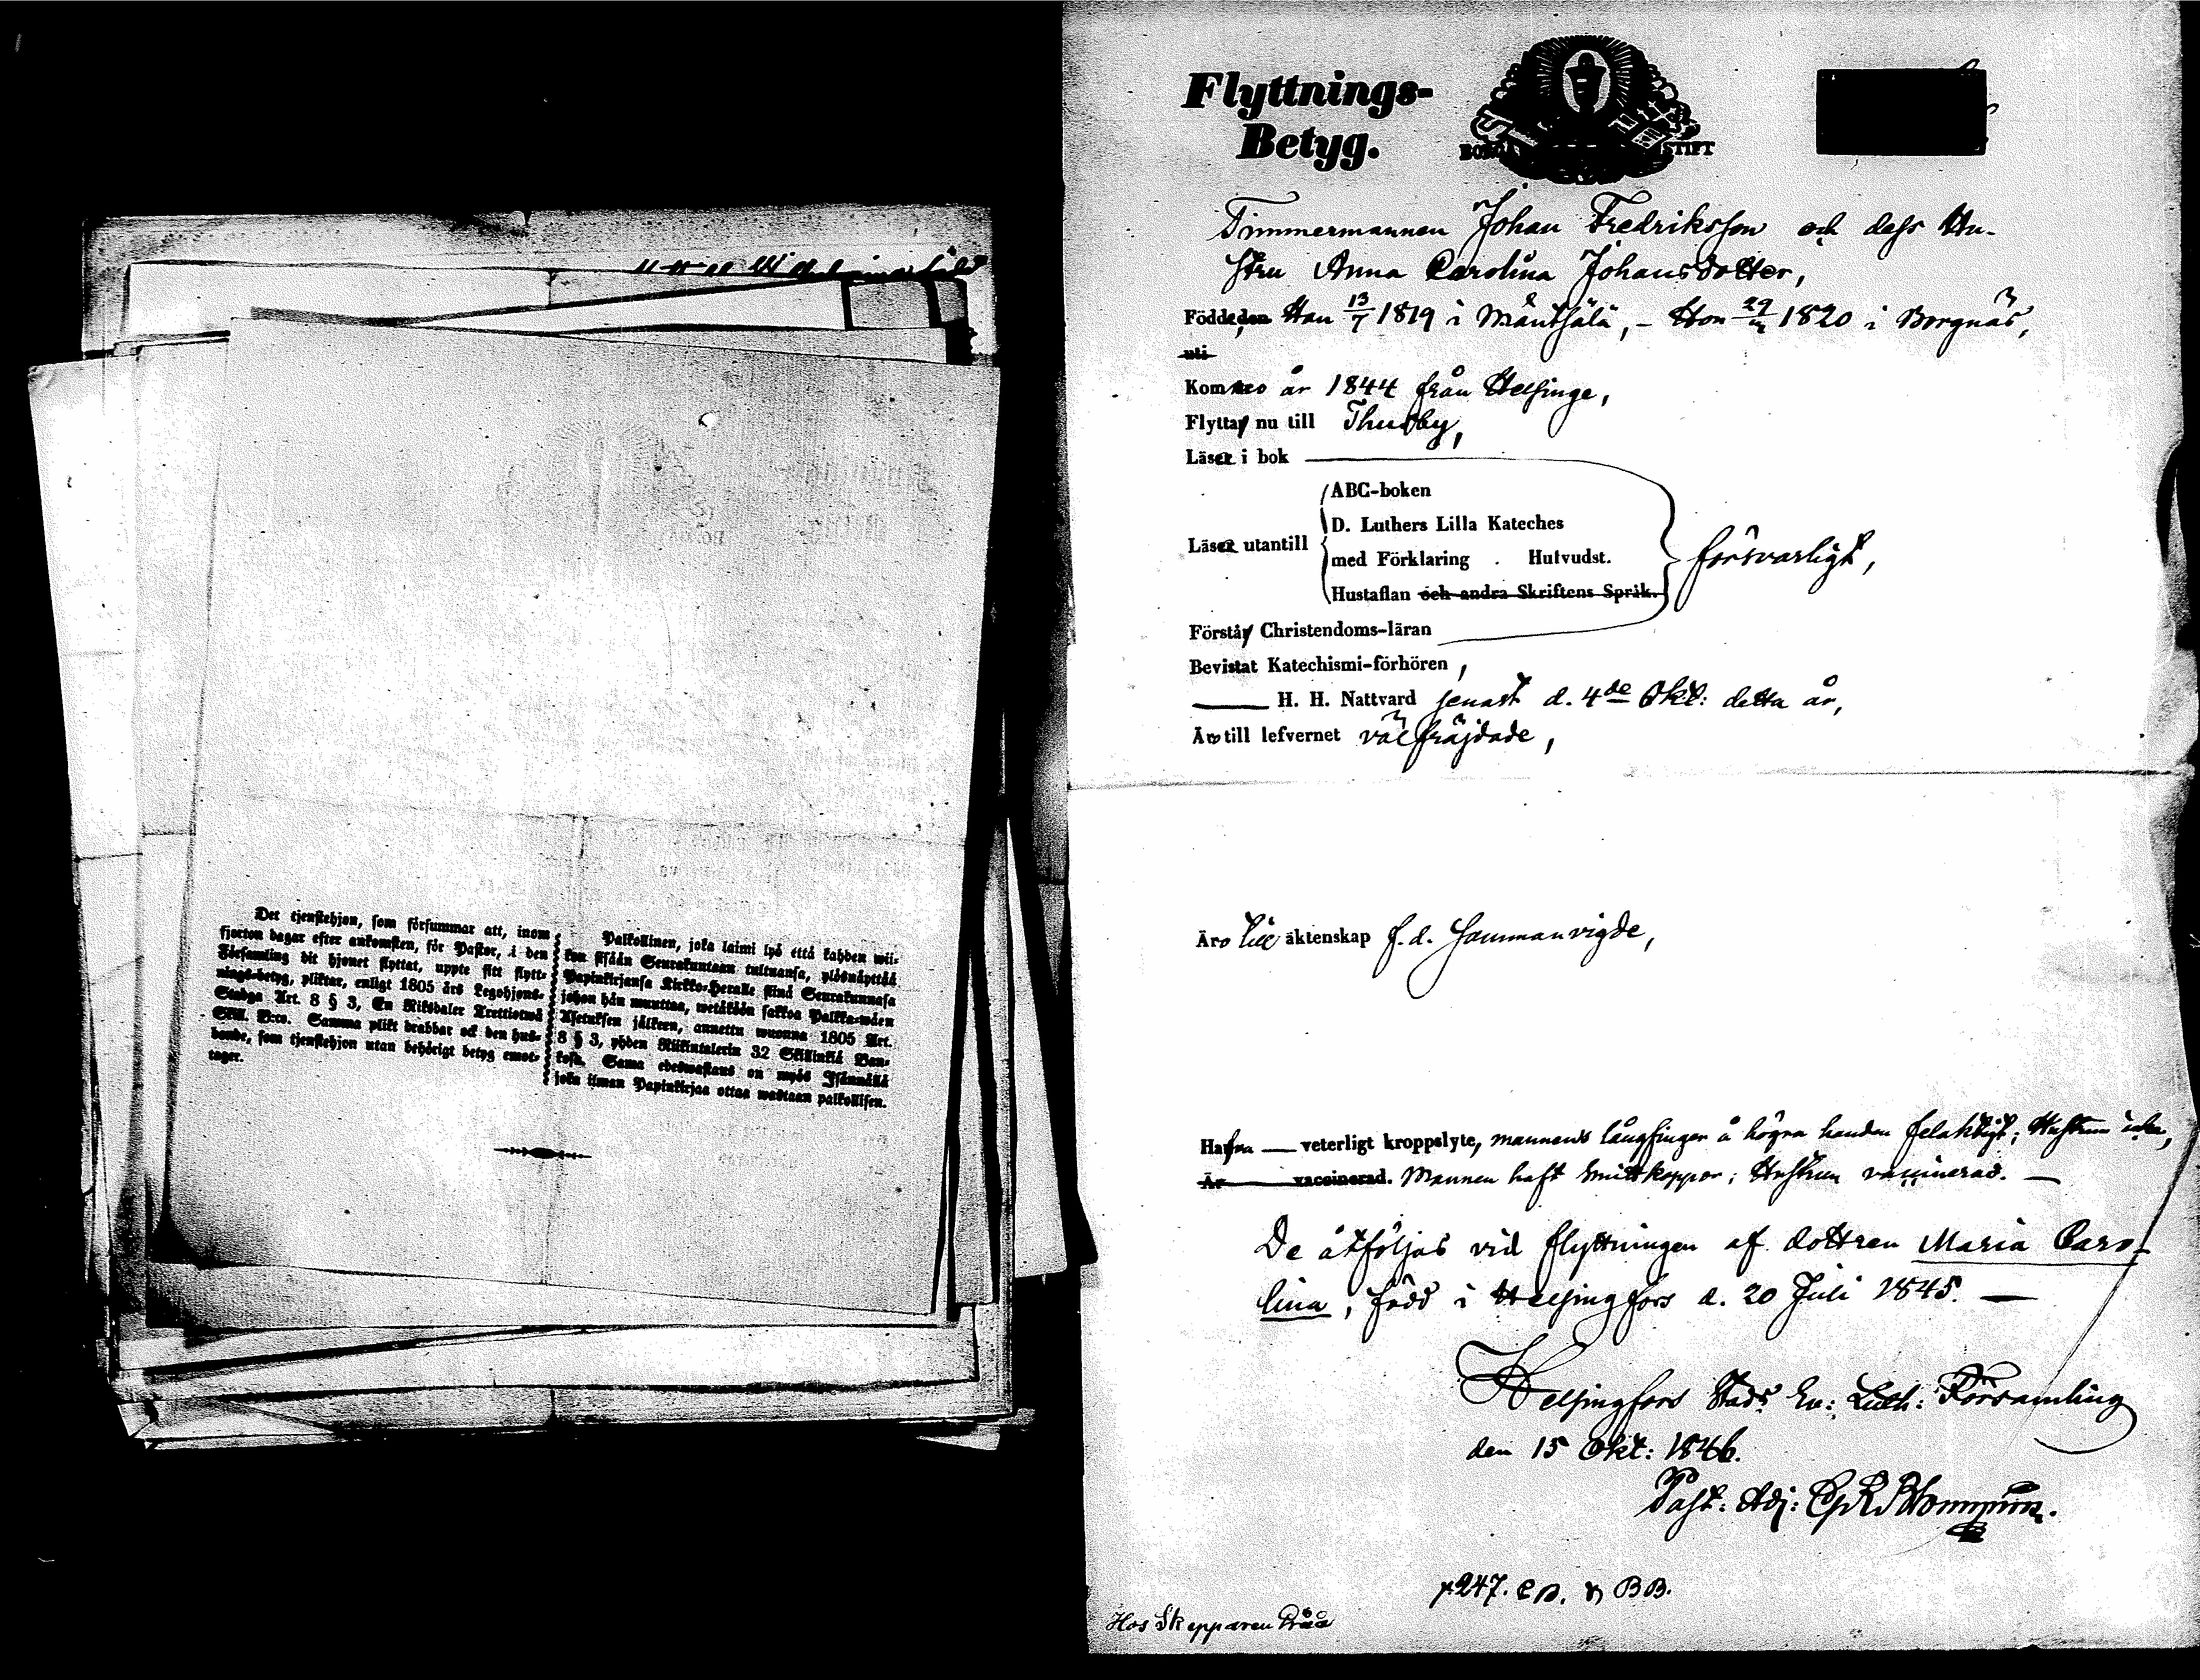 Det tjenstehjon, som försummar att, inom
fjorton dagar efter ankomsten, för Pastor, i den
Församling dit hjonet flyttat, uppte sitt flytt-
nings-betyg, pliktar, enligt 1805 års Legohjons-
Stadga Art. 8 § 3, En Riksdaler Trettiotwå
Skill. B:co. Samma plikt drabbar ock den hus-
bonde, som tjenstehjon utan behörigt betyg emot-
tager.
Palkollinen, joka laimi lyö että kahden wii-
kon sisään Seurakuntaan tultuansa, ylösnäyttää
Papinkirjansa Kirkko-Herralle siinä Seurakunnasa
johon hän muuttaa, wetäköön sakkoa Palkka-wäen
Asetuksen jälkeen, annettu wuonna 1805 Art.
8 § 3, yhden Riikintalerin 32 Skillinkiä Ban-
kosa. Sama edeswastaus on myös Isännällä
joka ilman Papinkirjaa ottaa wastaan palkollisen.
Flyttnings-
Betyg.
STIFT
Timmermannen Johan Fredriksson och dess Hu-
stru Anna Carolina Johansdotter,
Födde, den Han 13/7 1819 i Mäntsälä, - Hon 29/ 1820 i Borgnäs,
uti
Komne år 1844 från Helsinge,
Flytta nu till Thusby,
Läser i bok
ABC-boken
D. Luthers Lilla Kateches
Läser utantill
med Förklaring . Hufvudst.
försvarligt,
Hustaflan och andra Skriftens Språk.
Förstår Christendoms-läran
Bevistat Katechismi-förhören,
H. H. Nattvard senast d. 4de Okt: detta år,
Äro till lefvernet välfräjdade,
Äro till äktenskap f.d. sammanvigde,
Hafva — veterligt kroppslyte, mannens långfinger å högra handen felaktigt; Hustrun intet,
Är vaccinerad. Mannen haft smittkoppor; Hustrun vaccinerad. —
De åtföljas vid flyttningen af dottren Maria Caro-
lina, född i Helsingfors d. 20 Juli 1845. —
Helsingfors Stads Ev: Luth: Församling
den 15 Okt: 1846.
Past: Adj:
p 247.
Hos Skepparen